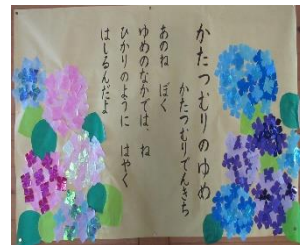 かたつむりのゆめ
かたつむりでんきち
あのね　ぼく
ゆめのなかでは、ね
ひかりのように　はやく
はしるんだよ